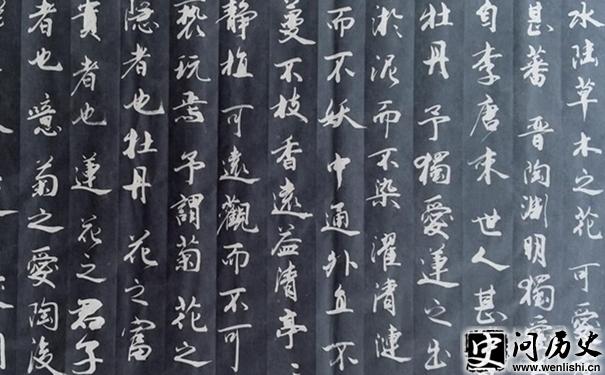 水陸草木之花可愛
甚蕃晋陶渊明獨
自李唐来世人甚
牡丹予獨愛蓮之出
淤泥而不染濯清漣
而不妖中通外直不
蔓不枝香遠益清亭
静植可遠觀而不可
褻玩焉予謂菊花之
隱者也牡丹花之富
貴者也蓮花之君子
者也噫菊之愛陶後
问历史
www.wenlishi.cn